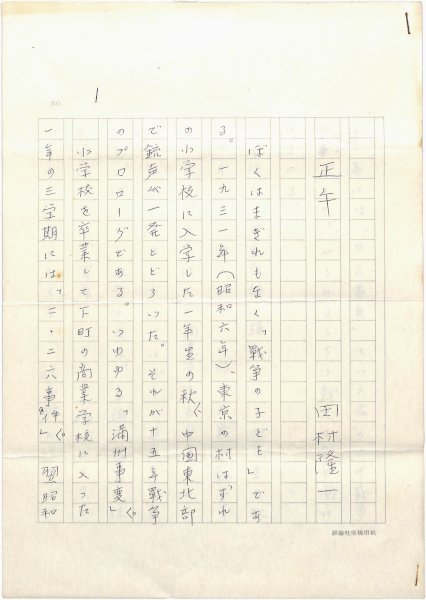 NO.
1
正午
田村隆一
ぼくはまぎれもなく「戦争の子ども」であ
る。一九三一年(昭和六年)、東京の村はずれ
の小学校に入学した一年生の秋、中国東北部
で銃声が一発とどろいた。それが十五年戦争
のプロローグである。いわゆる「満州事変」だ。
小学校を卒業して下町の商業学校に入った
一年の三学期には「二・二六事件」。翌昭和
評論社原稿用紙